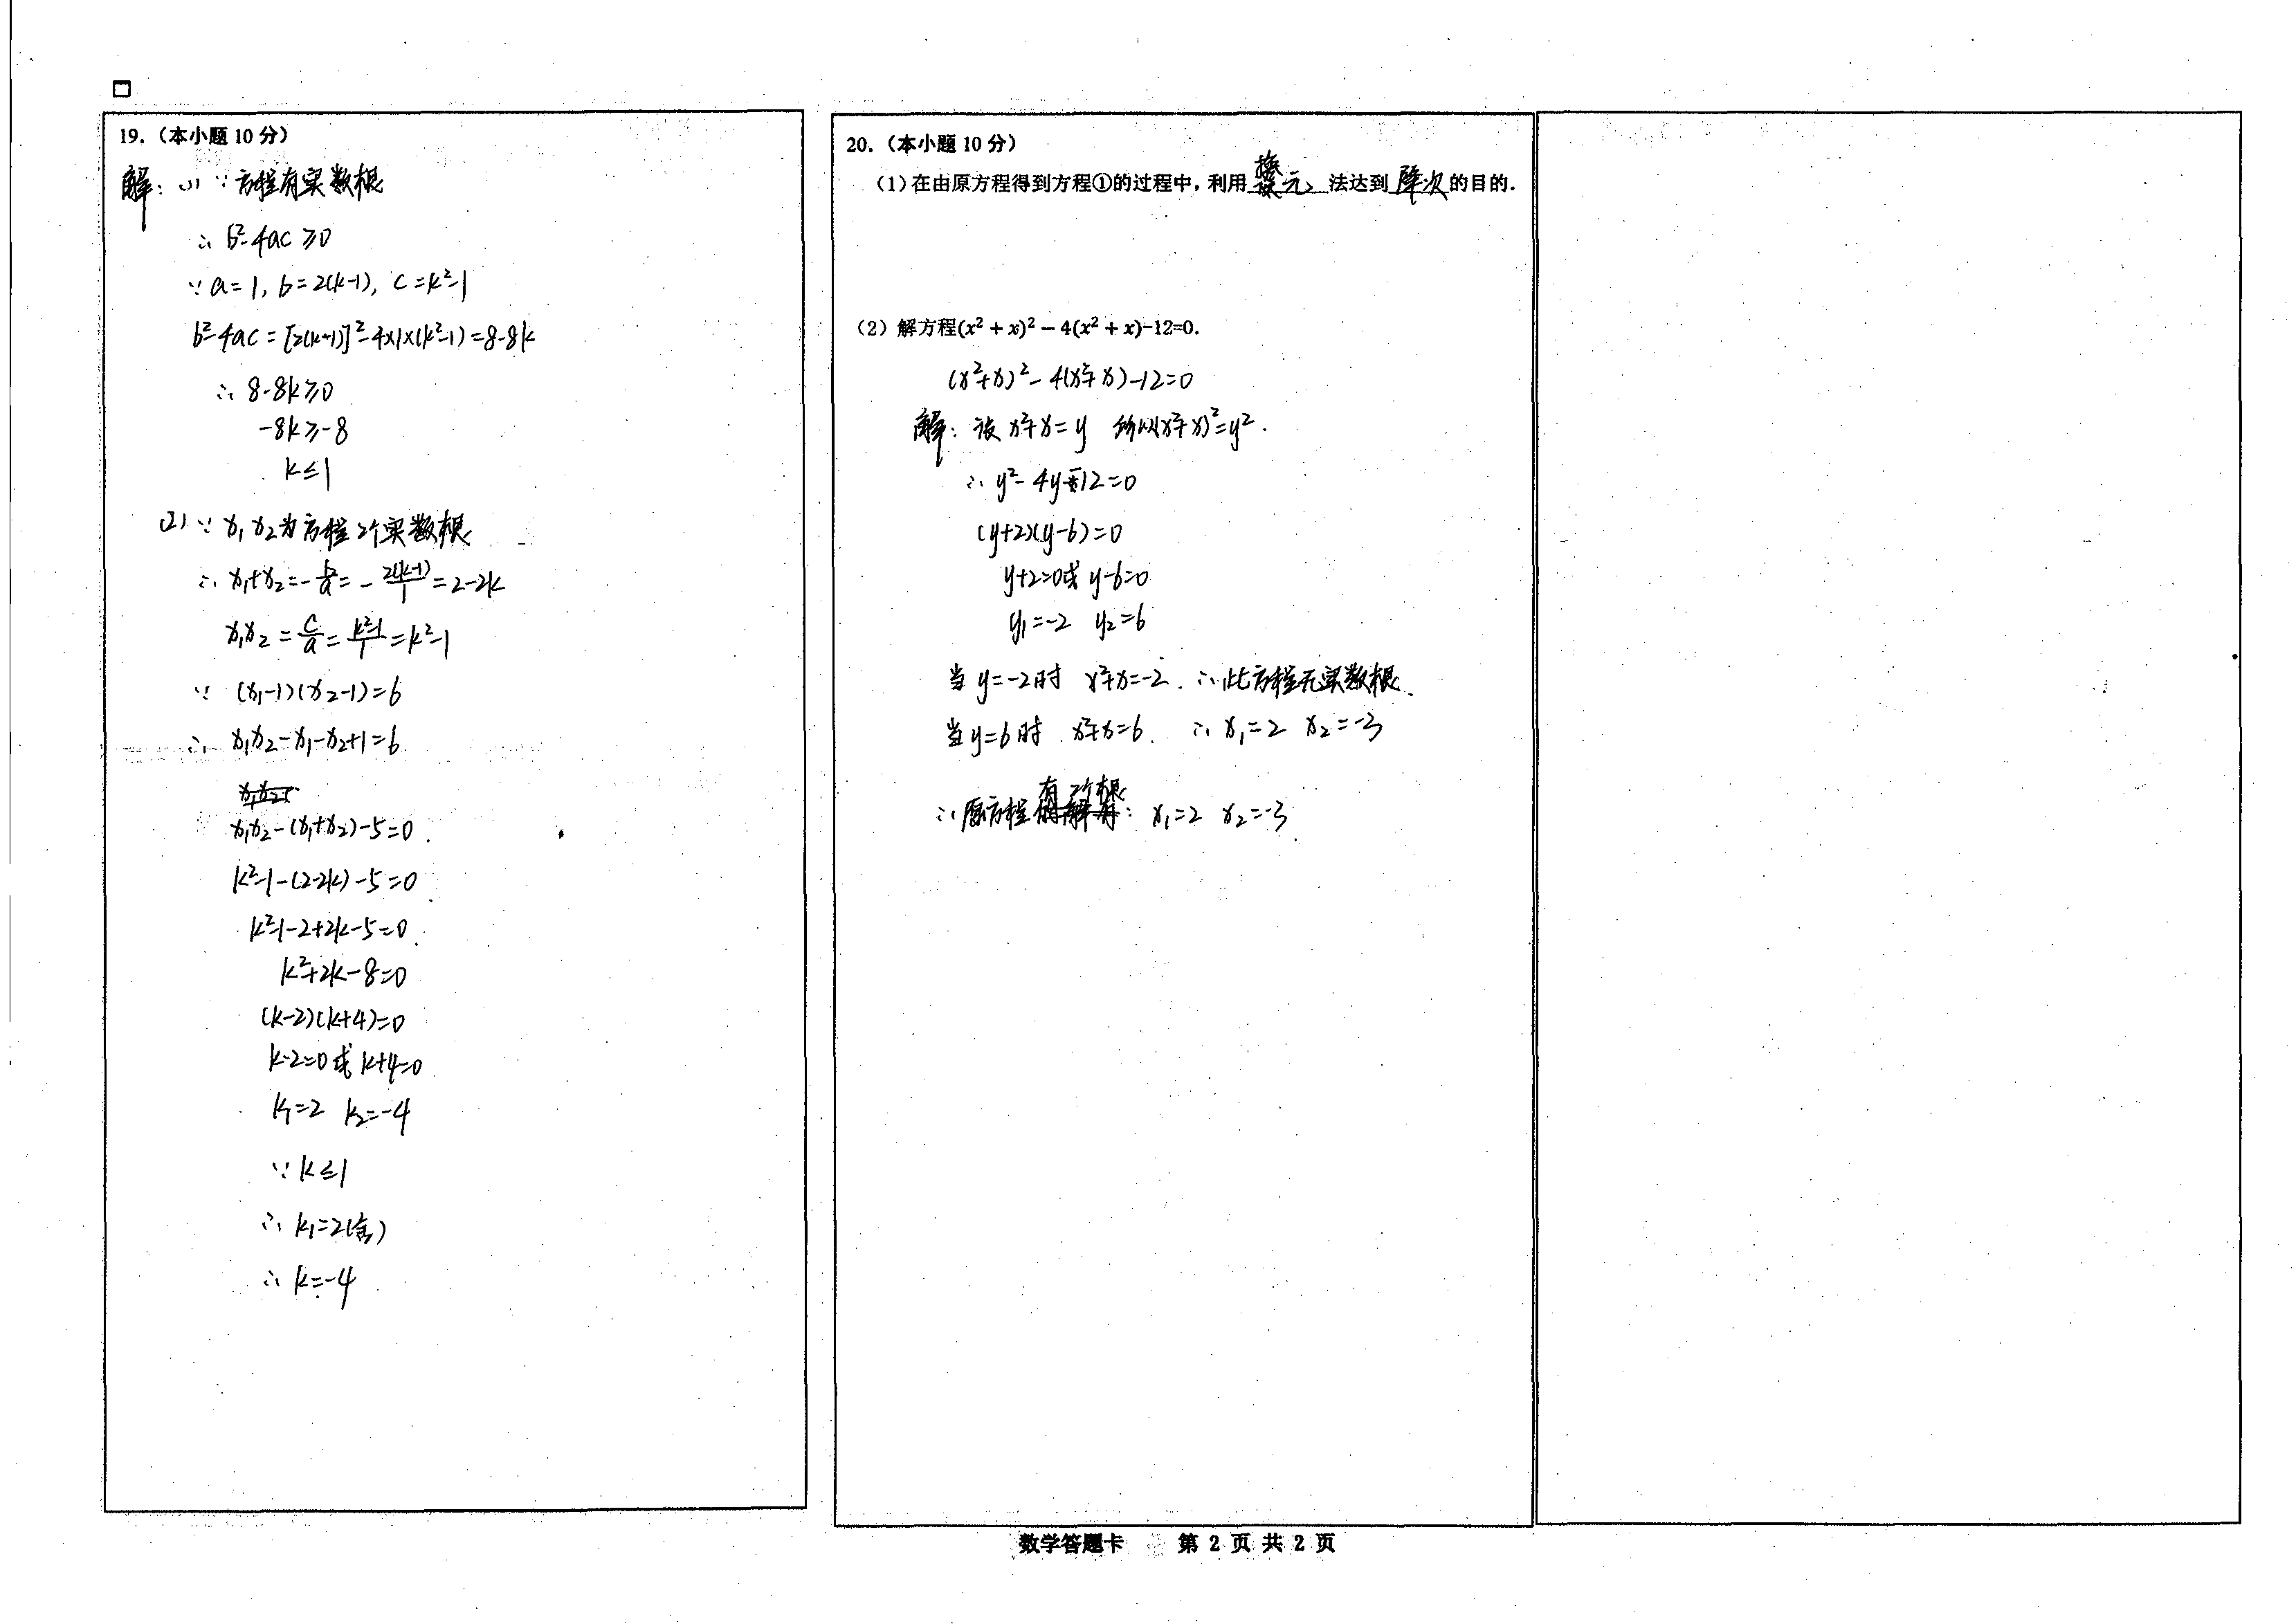 19. (本小题 10 分)
解: (1) ∵ 方程有实数根
∴ b²-4ac ≥0
∵ a=1, b=2(k-1), c=k²-1
b²-4ac=[2(k-1)]²-4×1×(k²-1)=8-8k
∴ 8-8k≥0
-8k≥-8
k≤1
(2) ∵ x₁ x₂为方程2个实数根
∴ x₁+x₂=-b/a=-2(k-1)/1=2-2k
x₁x₂=c/a=k²-1/1=k²-1
∵ (x₁-1)(x₂-1)=6
∴ x₁x₂-x₁-x₂+1=6
x₁x₂-(x₁+x₂)-5=0
k²-1-(2-2k)-5=0
k²-1-2+2k-5=0
k²+2k-8=0
(k-2)(k+4)=0
k-2=0或k+4=0
k₁=2 k₂=-4
∵ k≤1
∴ k₁=2(舍)
∴ k=-4
20. (本小题 10 分)
(1) 在由原方程得到方程①的过程中, 利用 换元 法达到 降次 的目的.
(2) 解方程(x² + x)² − 4(x² + x)-12=0.
(x²+x)²-4(x²+x)-12=0
解: 设 x²+x=y 所以(x²+x)²=y².
∴ y²-4y-12=0
(y+2)(y-6)=0
y+2=0或 y-6=0
y₁=-2 y₂=6
当 y=-2时 x²+x=-2. ∴此方程无实数根.
当 y=6时 x²+x=6. ∴ x₁=2 x₂=-3
∴原方程有2个根: x₁=2 x₂=-3
数学答题卡 第 2 页 共 2 页